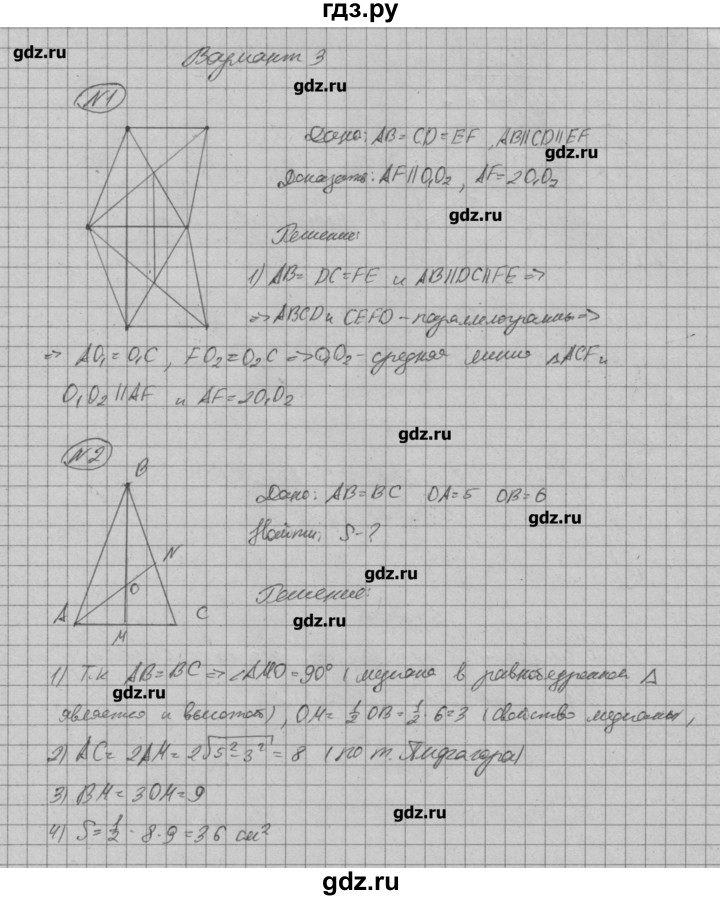 гдз.ру
gdz.ru
Вариант 3
gdz.ru
№1
Дано: AB = CD = EF, AB||CD||EF
gdz.ru
Доказать: AF || O₁O₂, AF = 2O₁O₂
gdz.ru
Решение:
1) AB = DC = FE и AB||DC||FE =>
=> ABCD и CEFD - параллелограммы =>
=> AO₁ = O₁C, FO₂ = O₂C => O₁O₂ - средняя линия ΔACF и
O₁O₂ || AF и AF = 2O₁O₂
gdz.ru
№2
B
Дано: AB = BC OA = 5 OB = 6
gdz.ru
Найти: S - ?
N
gdz.ru
O
Решение:
A C
gdz.ru
M
1) Т.к AB = BC => ∠AMO = 90° (медиана в равнобедренном Δ
gdz.ru
является и высотой), OM = 1/2 OB = 1/2 · 6 = 3 (свойство медианы)
2) AC = 2AM = 2√(5² - 3²) = 8 (по т. Пифагора)
3) BM = 3OM = 9
gdz.ru
4) S = 1/2 · 8 · 9 = 36 см²
gdz.ru